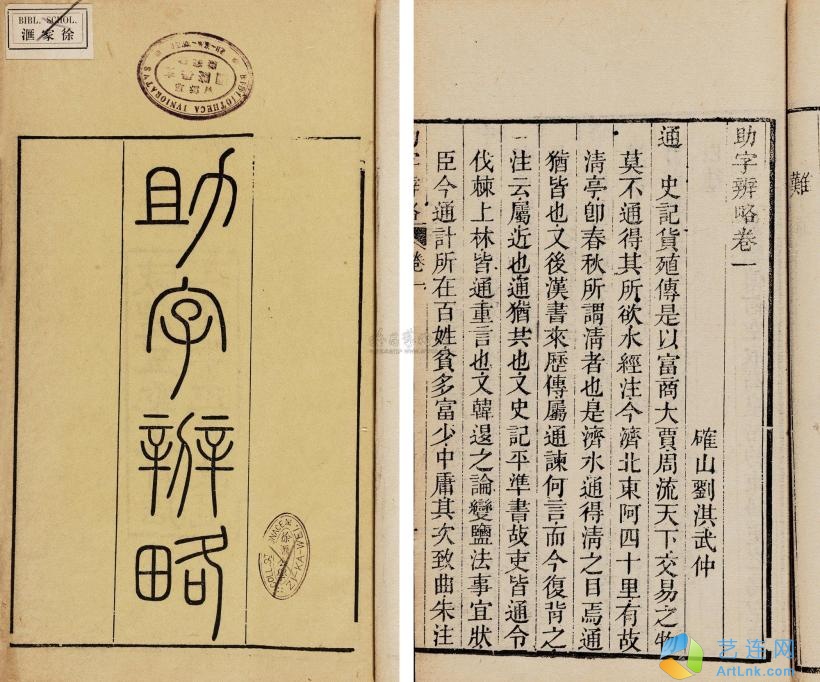 BIBL. SCHOL.
徐家滙
BIBLIOTHECA IVNIORATA
助字辨略
ZI-KA-WEI
難
助字辨略卷一
確山劉淇武仲
通　史記貨殖傳是以富商大賈周流天下交易之物
莫不通得其所欲水經注今濟北東阿四十里有故
清亭卽春秋所謂清者也是濟水通得清之目焉通
猶皆也又後漢書來歷傳屬通諫何言而今復背之
注云屬近也通猶共也又史記平準書故吏皆通令
伐棘上林皆通重言也又韓退之論變鹽法事宜狀
臣今通計所在百姓貧多富少中庸其次致曲朱注
助字辨略 卷一
艺连网
ArtLnk.com